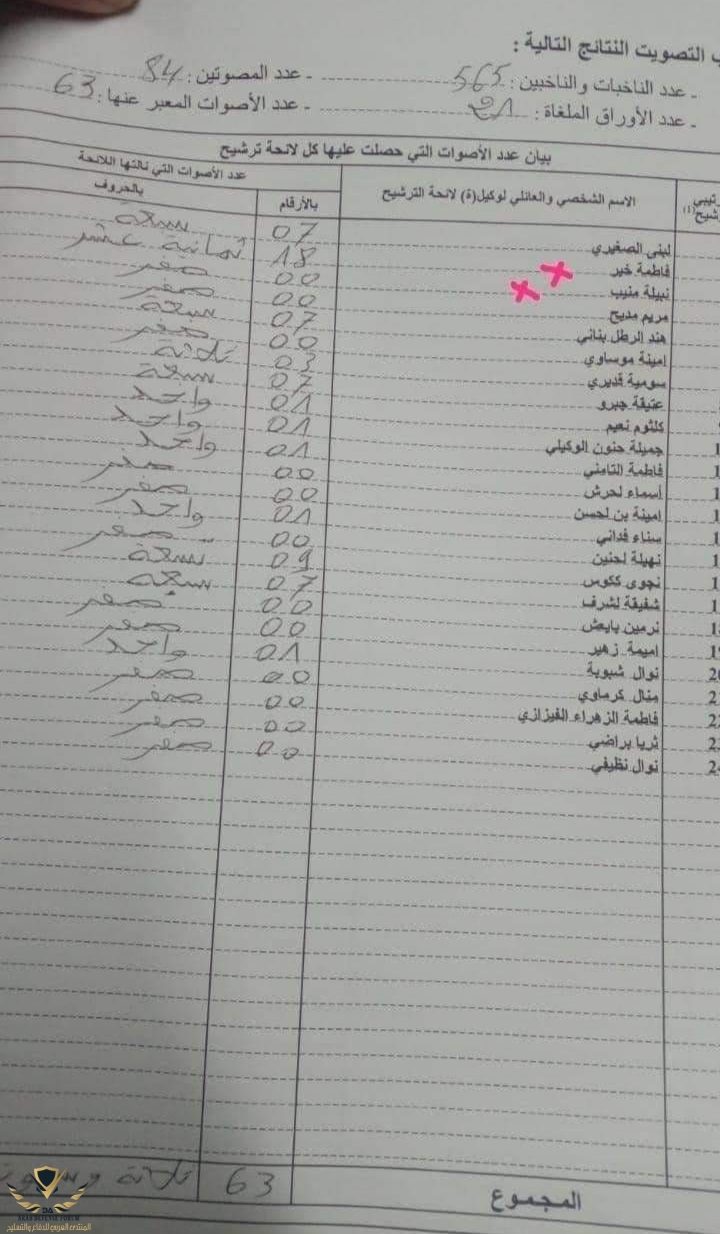 التصويت النتائج التالية :
- عدد الناخبات والناخبين : 565 - عدد المصوتين : 84
- عدد الأوراق الملغاة : 21 - عدد الأصوات المعبر عنها : 63
بيان عدد الأصوات التي حصلت عليها كل لائحة ترشيح
الاسم الشخصي والعائلي لوكيل(ة) لائحة الترشيح
عدد الأصوات التي نالتها اللائحة
بالأرقام بالحروف
لبنى الصغيري 07 سبعة
فاطمة خير 18 ثمانية عشر
نبيلة منيب 00 صفر
مريم مديح 00 صفر
هند الرطل بناني 07 سبعة
امينة موساوي 00 صفر
سومية قديري 03 ثلاثة
عتيقة جبرو 07 سبعة
كلثوم نعيم 01 واحد
جميلة حنون الوكيلي 01 واحد
فاطمة التامني 01 واحد
أسماء لحرش 00 صفر
امينة بن لحسن 00 صفر
سناء فداني 01 واحد
نهيلة لحنين 00 صفر
نجوى ككوس 09 تسعة
شفيقة لشرف 07 سبعة
نرمين بايعض 00 صفر
اميمة زهير 00 صفر
نوال شبوية 01 واحد
منال كرماوي 00 صفر
فاطمة الزهراء الفيزازي 00 صفر
ثريا براضي 00 صفر
نوال نظيفي 00 صفر
المجموع 63 ثلاثة وستون
ARAB DEFENSE FORUM
المنتدى العربي للدفاع والتسليح